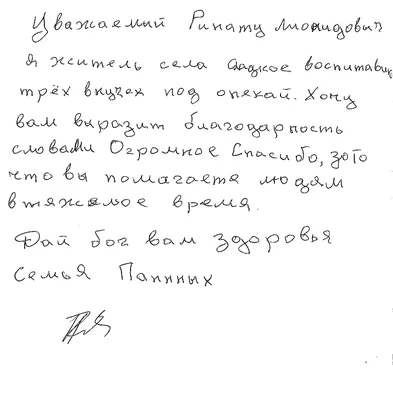 Уважаемий Ринату Лионидович
я житель села Сладкое воспитавщ
трёх внучех под опекай. Хочу
вам выразит благодарность
словами Огромное Спасибо, зато
что вы помагаете людям
втяжелое время.
Дай бог вам здоровья
семья Панных